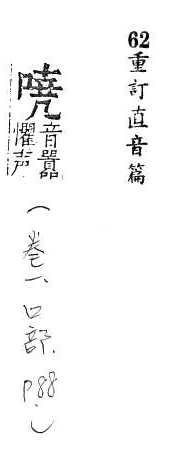 62重訂直音篇
嘵
音囂
懼声
(卷一、口部.P88.)